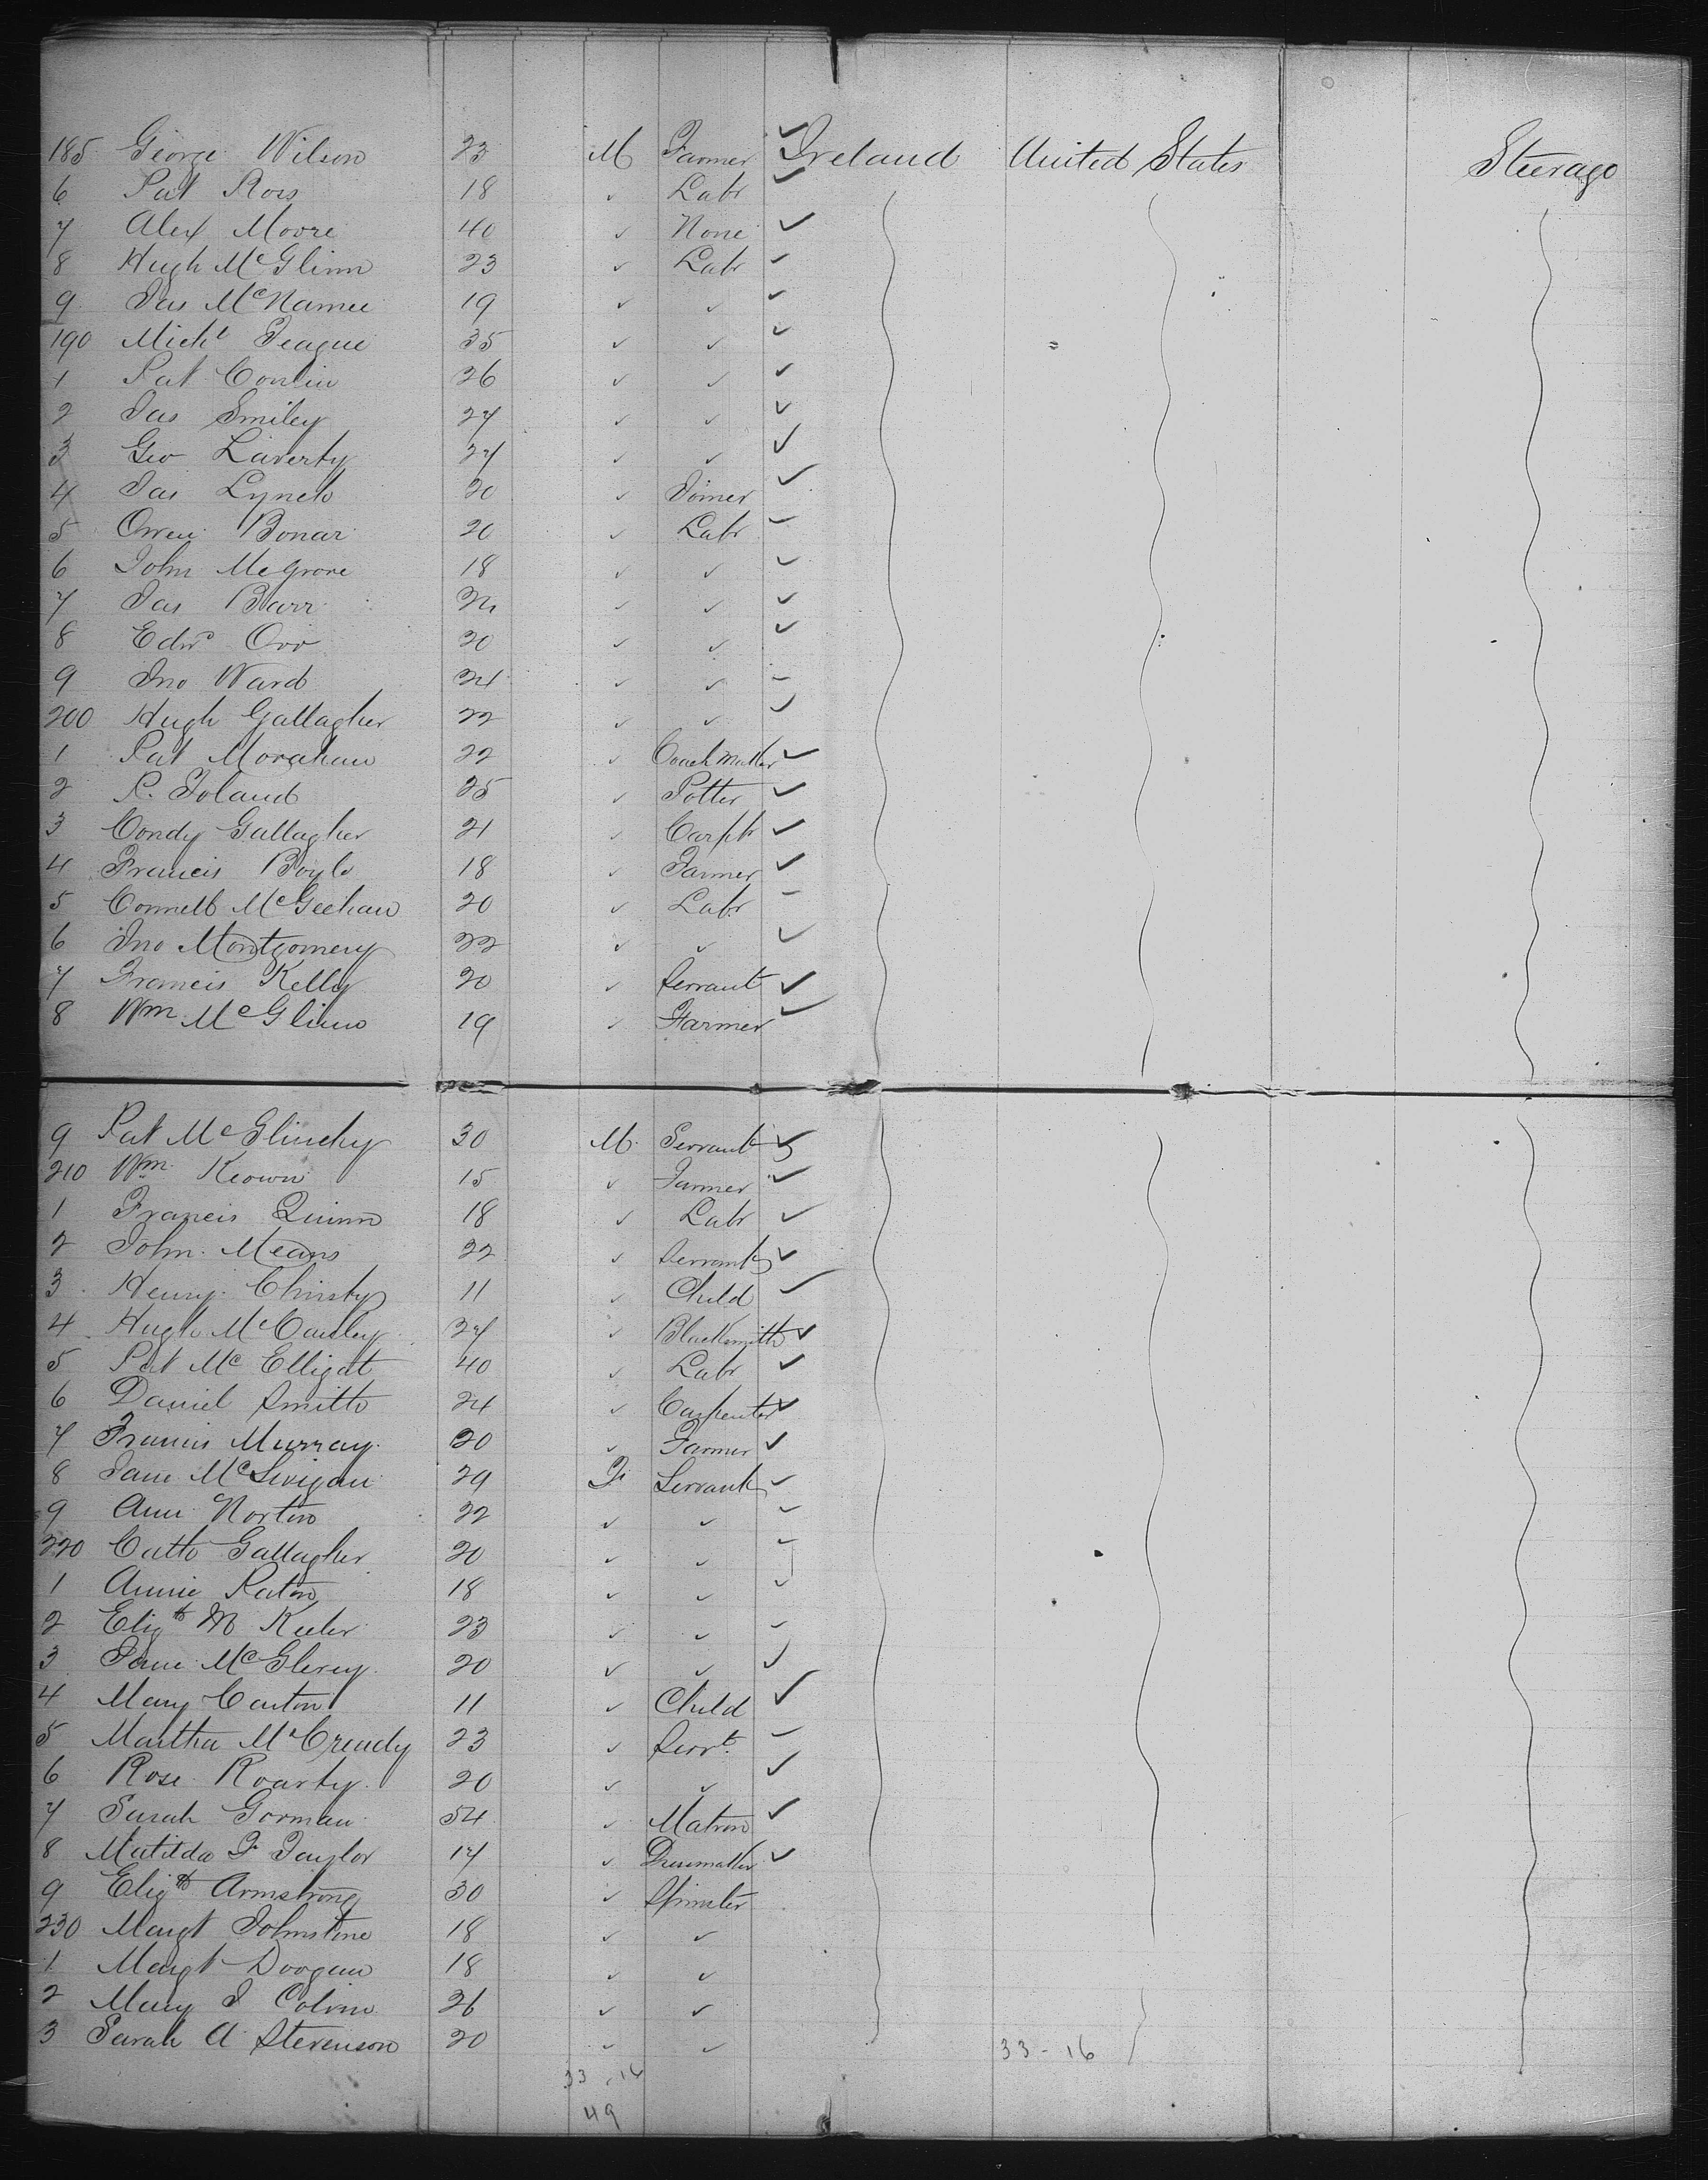 185 George Wilson 23 M Farmer ✓ Ireland United States Steerage
6 Pat Ross 18 ✓ Labr ✓
7 Alex Moore 40 ✓ None ✓
8 Hugh McGlinn 23 ✓ Labr ✓
9 Jas McNamee 19 ✓ ✓ ✓
190 Michl Teague 35 ✓ ✓ ✓
1 Pat Conlin 26 ✓ ✓ ✓
2 Jas Smiley 27 ✓ ✓ ✓
3 Geo Laverty 27 ✓ ✓ ✓
4 Jas Lynch 20 ✓ ✓
5 Owen Bonar 20 ✓ Labr ✓
6 John McGrove 18 ✓ ✓ ✓
7 Jas Barr ✓ ✓ ✓
8 Edwd Orr 20 ✓ ✓ ✓
9 Jno Ward 24 ✓ ✓ ✓
200 Hugh Gallagher 22 ✓ ✓ ✓
1 Pat Monahan 22 ✓ Coachmaker ✓
2 P. Toland 25 ✓ Potter ✓
3 Condy Gallagher 21 ✓ Carptr ✓
4 Francis Boyle 18 ✓ Farmer ✓
5 Connell McGeehan 20 ✓ Labr ✓
6 Jno Montgomery 22 ✓ ✓ ✓
7 Francis Kelly 20 ✓ Servant ✓
8 Wm McGlinn 19 ✓ Farmer ✓
9 Pat McGlinchy 30 M Servant ✓
210 Wm Keown 15 ✓ Farmer ✓
1 Francis Quinn 18 ✓ Labr ✓
2 John Means 22 ✓ Servant ✓
3 Henry Christy 11 ✓ Child ✓
4 Hugh McCauley 27 ✓ Blacksmith ✓
5 Pat McElligat 40 ✓ Labr ✓
6 Daniel Smith 24 ✓ Carpenter ✓
7 Francis Murray 20 ✓ Farmer ✓
8 Jane McSivigan 29 F Servant ✓
9 Ann Norton 22 ✓ ✓ ✓
220 Cath Gallagher 20 ✓ ✓ ✓
1 Annie Paton 18 ✓ ✓ ✓
2 Elizth M Keeler 23 ✓ ✓ ✓
3 Jane 20 ✓ ✓ ✓
4 Mary Canton 11 ✓ Child ✓
5 Martha McCready 23 ✓ Servt ✓
6 Rose Roarty 20 ✓ ✓ ✓
7 Sarah Gorman 54 ✓ Matron ✓
8 Matilda F Taylor 17 ✓ Dressmaker ✓
9 Elizth Armstrong 30 ✓ Spinster
230 Margt Johnstone 18 ✓ ✓
1 Margt Doogan 18 ✓ ✓
2 Mary J Colvin 26 ✓ ✓
3 Sarah A Stevenson 20 ✓ ✓
33 - 16
33 . 16
49